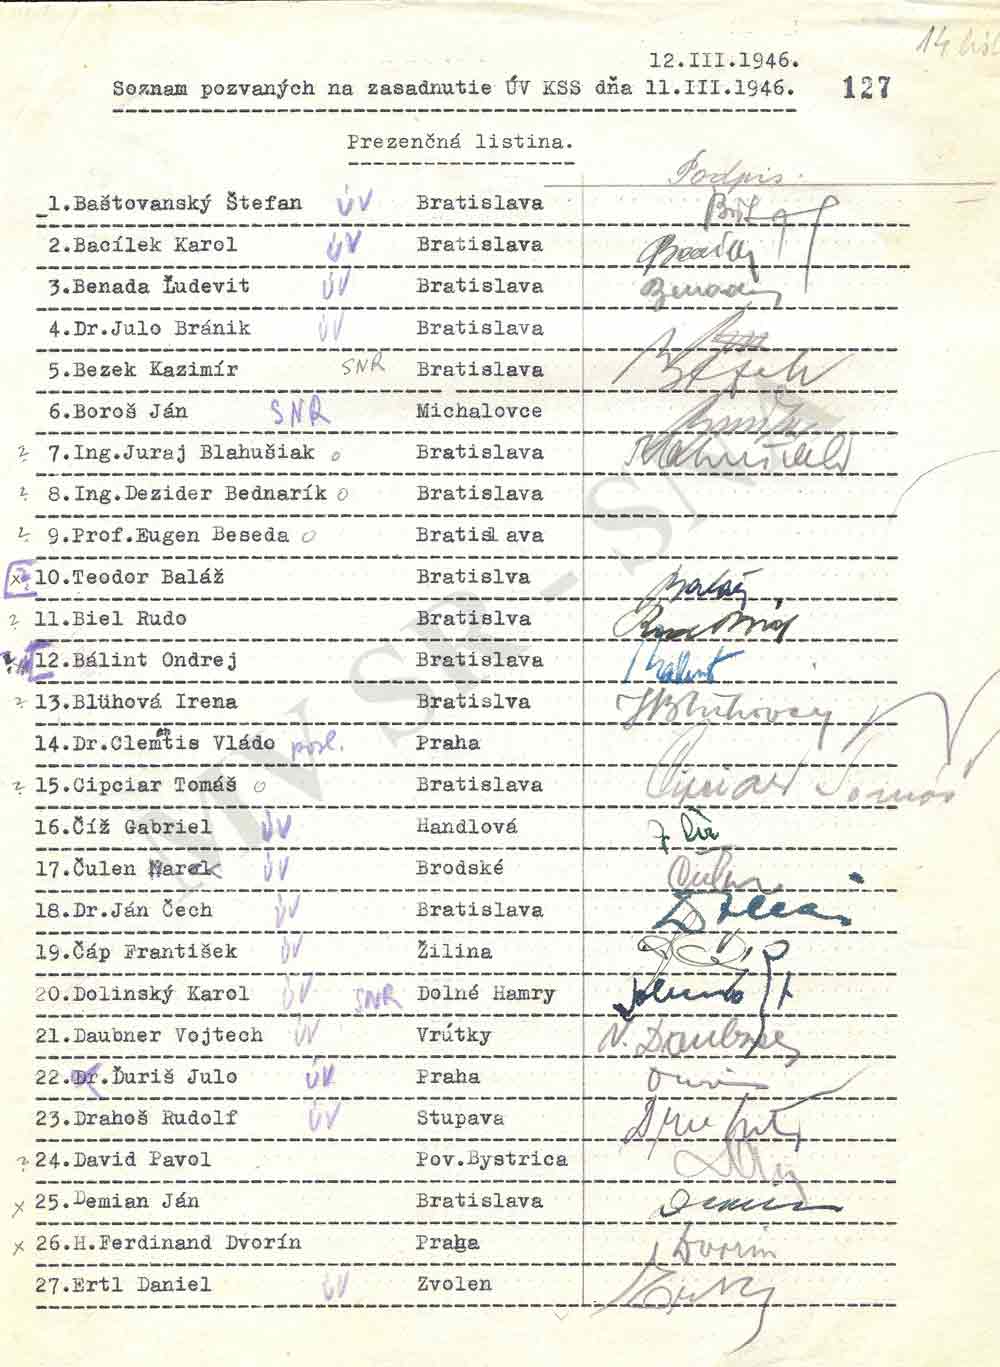 14 
12.III.1946.
Soznam pozvaných na zasadnutie ÚV KSS dňa 11.III.1946. 127
Prezenčná listina.
Podpis.
1.Baštovanský Štefan ÚV Bratislava
2.Bacílek Karol ÚV Bratislava
3.Benada Ľudevit ÚV Bratislava Benada
4.Dr.Julo Bránik ÚV Bratislava
5.Bezek Kazimír SNR Bratislava
6.Boroš Ján SNR Michalovce
? 7.Ing.Juraj Blahušiak o Bratislava
? 8.Ing.Dezider Bednarík o Bratislava
? 9.Prof.Eugen Beseda o Bratislava
x? 10.Teodor Baláž Bratislva Baláž
? 11.Biel Rudo Bratislva
12.Bálint Ondrej Bratislava Balint
? 13.Blühová Irena Bratislva
14.Dr.Clemetis Vládo posl. Praha
? 15.Cipciar Tomáš o Bratislava Cipciar Tomáš
16.Číž Gabriel ÚV Handlová
17.Čulen Marek ÚV Brodské Čulen
18.Dr.Ján Čech ÚV Bratislava
19.Čáp František ÚV Žilina
20.Dolinský Karol ÚV SNR Dolné Hamry
21.Daubner Vojtech ÚV Vrútky V. Daubner
22.Dr.Ďuriš Julo ÚV Praha
23.Drahoš Rudolf ÚV Stupava
? 24.David Pavol Pov.Bystrica
x 25.Demian Ján Bratislava
x 26.H.Ferdinand Dvorín Praha Dvorin
27.Ertl Daniel ÚV Zvolen
MV SR - SNA